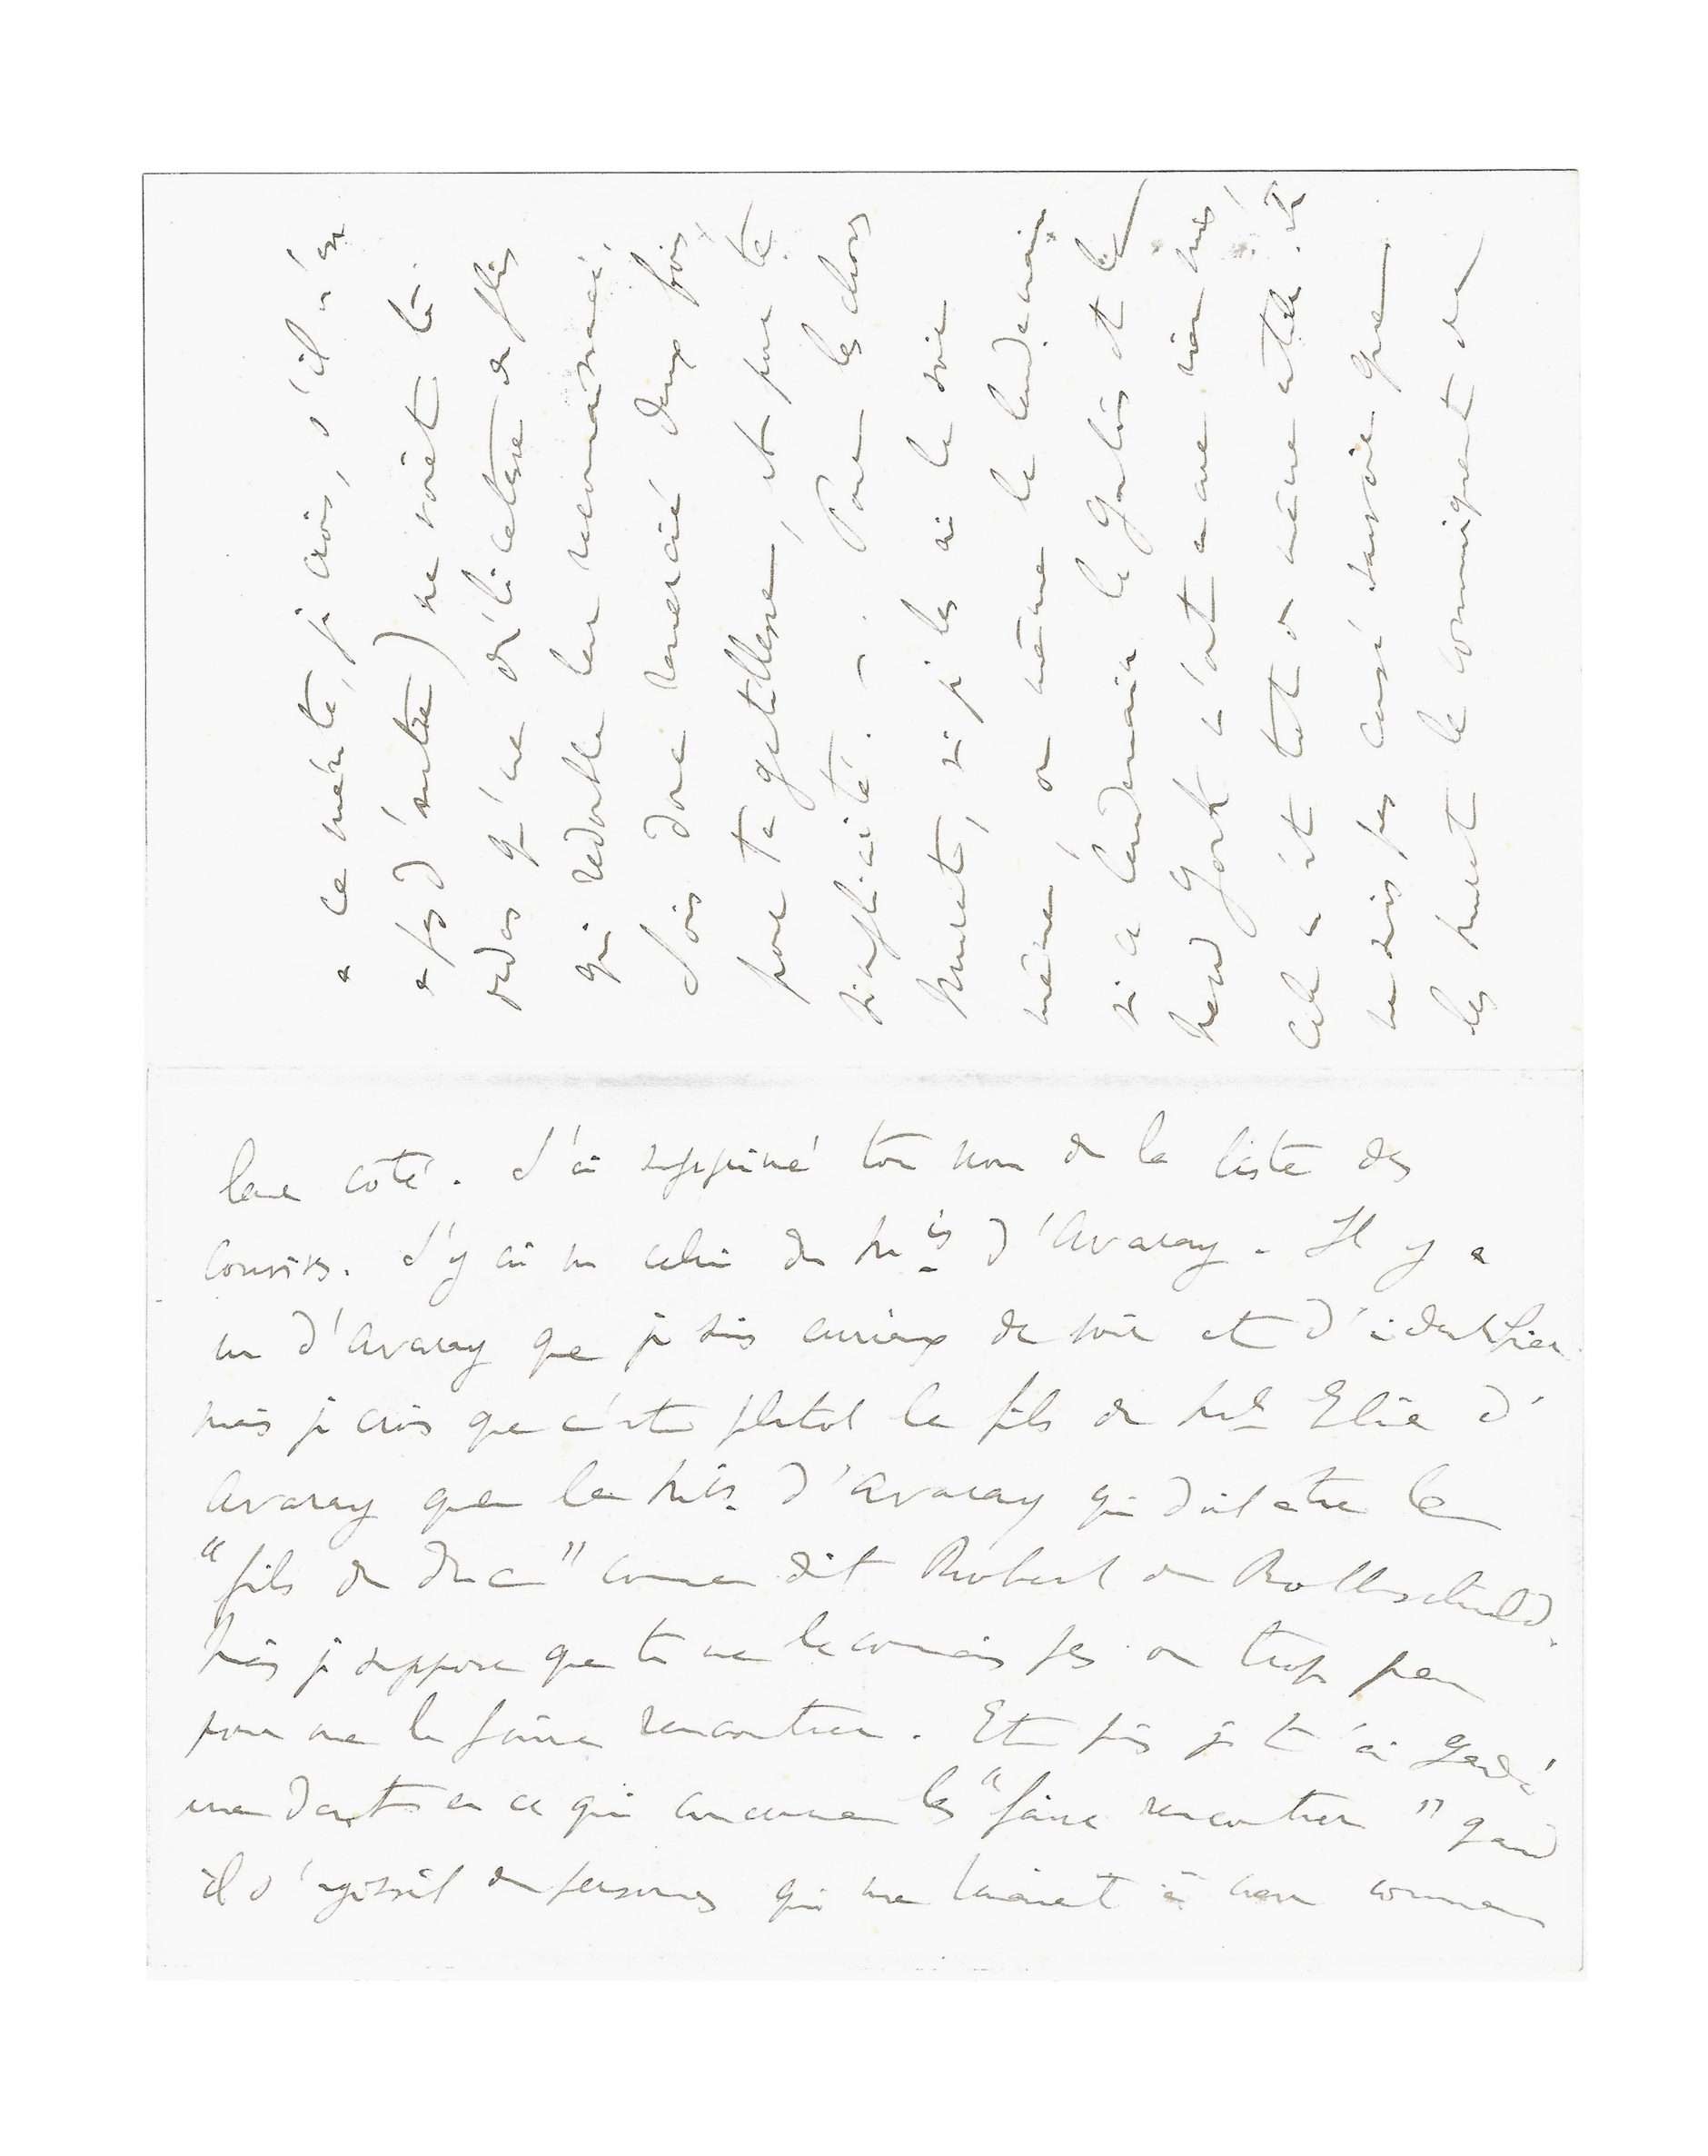 a ce mérite, je crois, s'il n'en
a pas d'autre) ne voient là
qu'une délicatesse de plus
qui redouble leur reconnaissance.
Sois donc remercié deux fois,
pour ta gentillesse, et pour ta
simplicité. — . Pour les choses
Murat, si je les ai le soir
même, ou même le lendemain,
si ce lendemain le Gaulois et le
New York n'ont encore rien mis,
cela ira tout de même très bien.
ne suis pas censé savoir que
les Murat le communiquent de
leur côté. J'ai supprimé ton nom de la liste des
convives. J'y ai vu celui du Mis d'Avaray. Il y a
un d'Avaray que je suis curieux de voir et d'identifier.
mais je crois que c'est plutôt le fils de Me Elie d'
Avaray que le Mis d'Avaray qui doit être le
"fils du duc" comme dit Robert de Rothschild.
Mais je suppose que tu ne le connais pas ou trop peu
pour me le faire rencontrer. Et puis je t'ai gardé
une dent en ce qui concerne les "faire rencontrer" quand
il s'agissait de personnes qui me tenaient à cœur comme